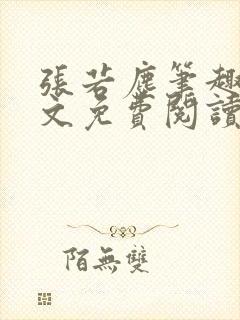 張若塵筆趣
文免費閱讀
陌無雙